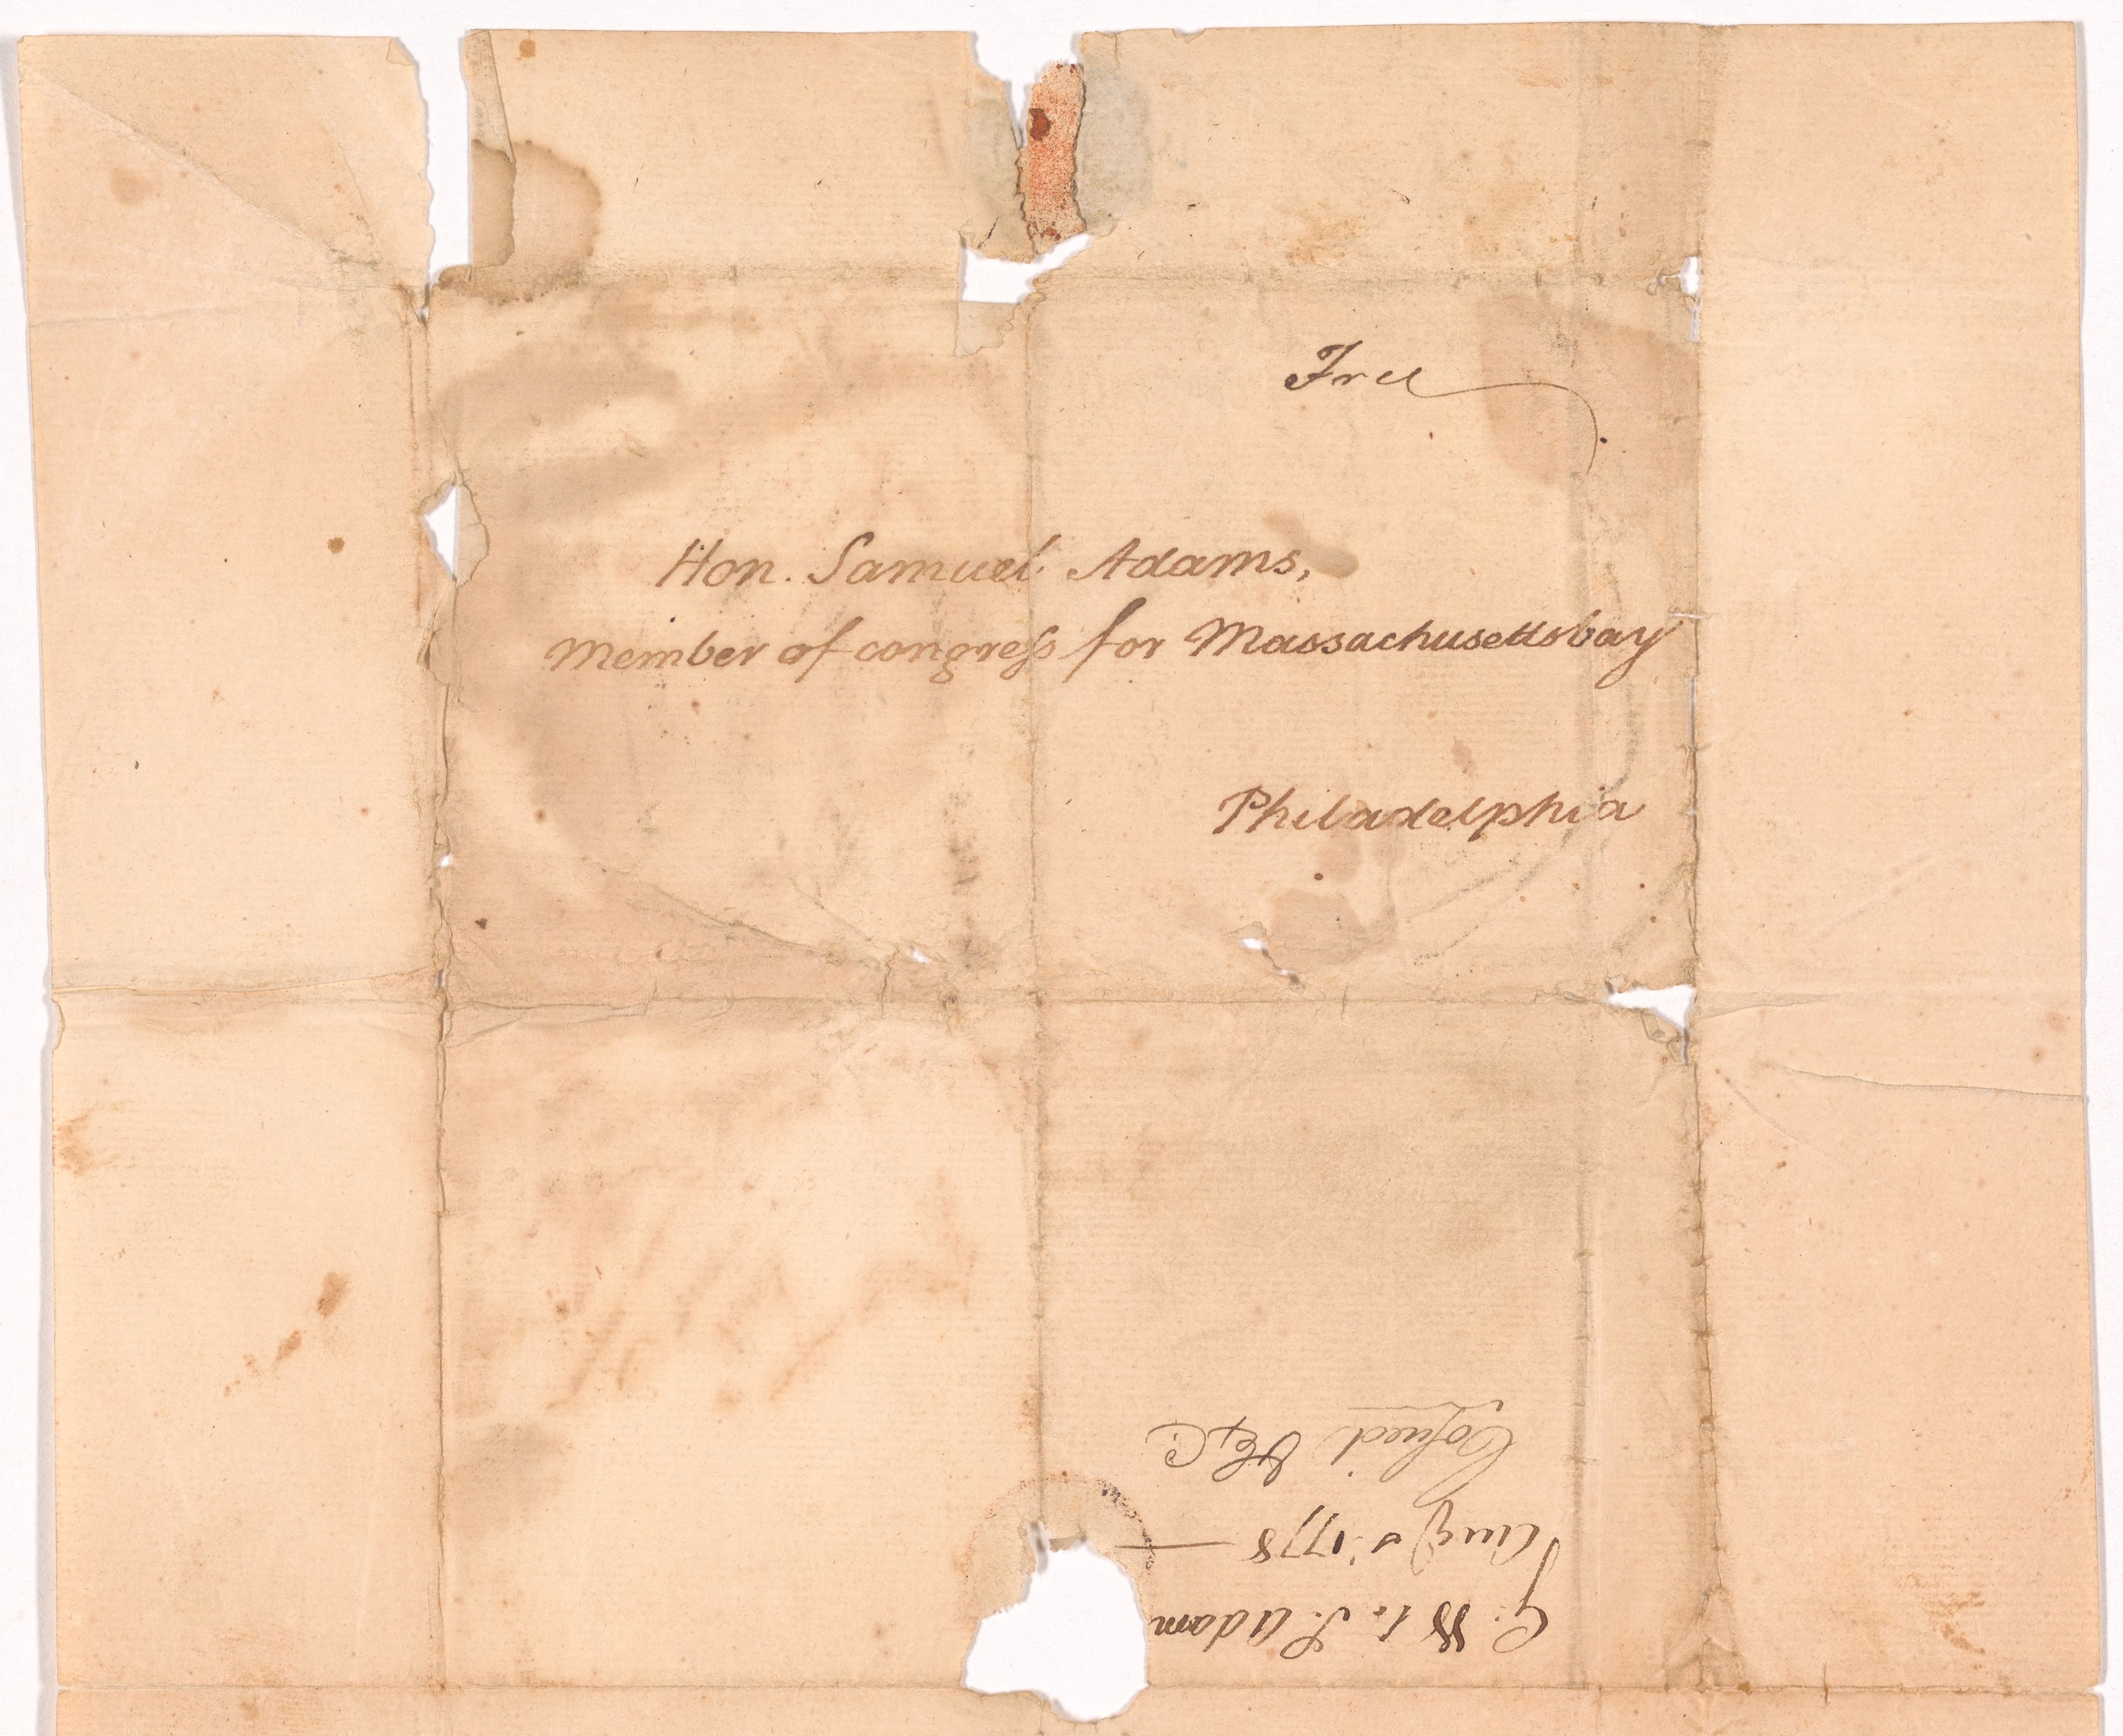 Free
Hon. Samuel Adams,
Member of congress for Massachusettsbay
Philadelphia
G. W to S. Adam
1778
Copied